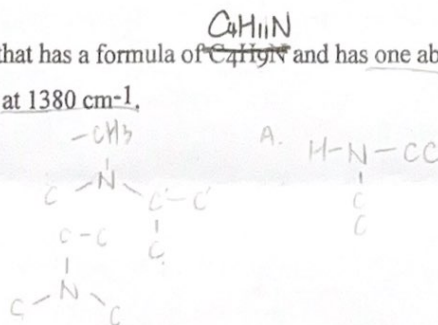 C4H11N
that has a formula of C4H9N and has one ab
at 1380 cm-1.
-CH3
A.
H-N-CC
N
C
C-C
C
C
C-C
C
N
C
C